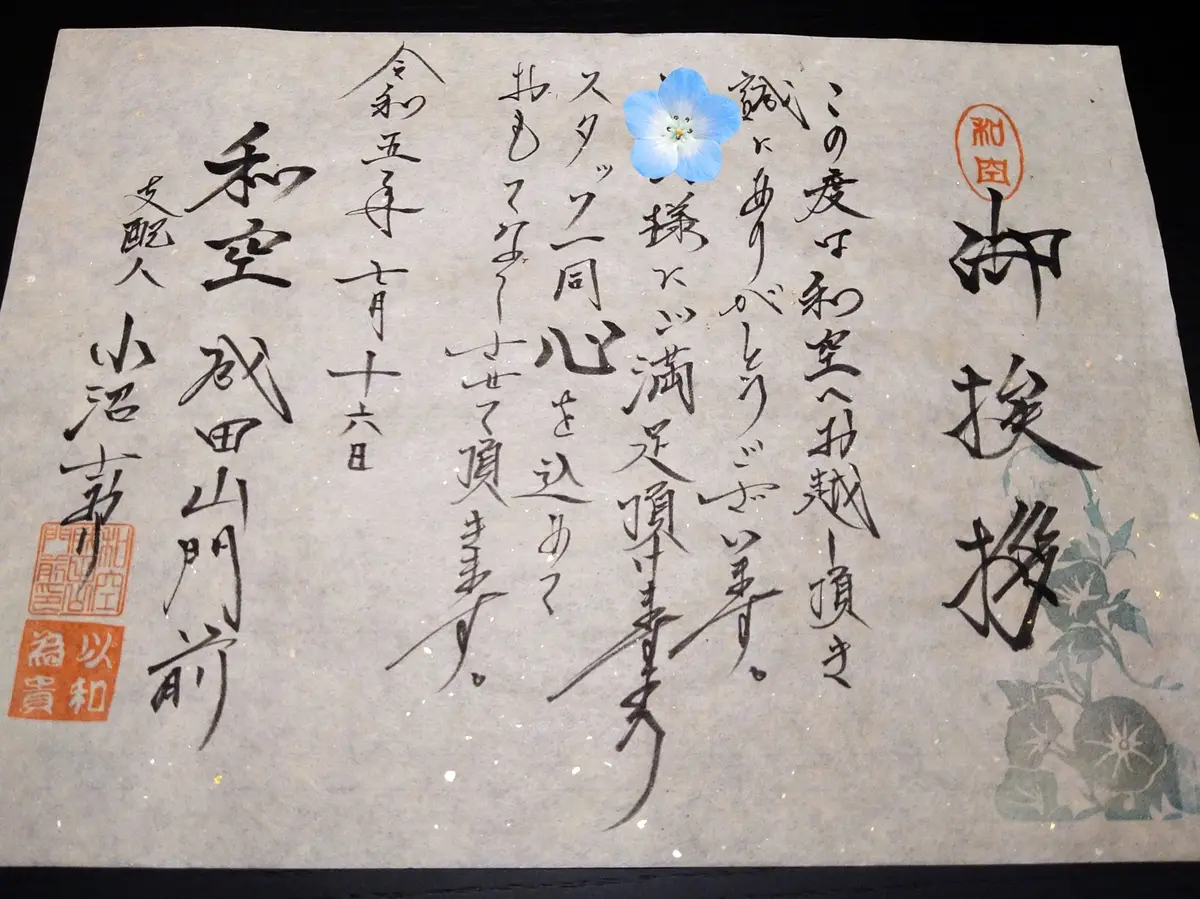 和空
御挨拶
この度は和空へお越し頂き
誠にありがとうございます。
様にご満足頂けますよう
スタッフ一同心を込めて
おもてなしさせて頂きます。
令和五年七月十六日
和空 成田山門前
支配人 小沼
以和為貴